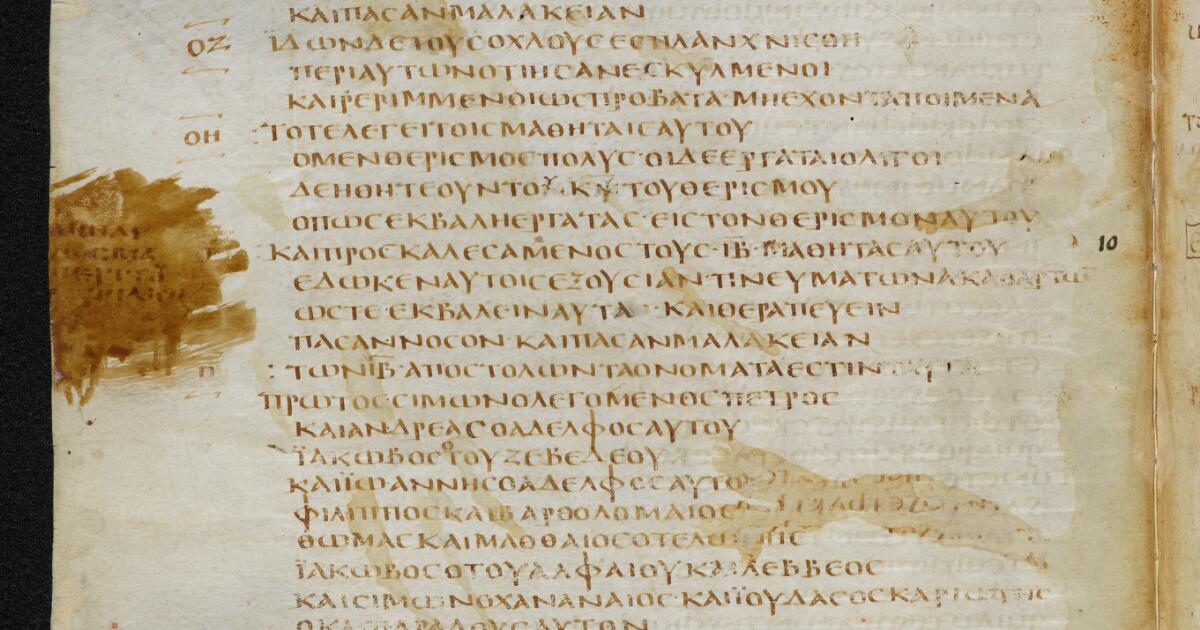 ΚΑΙΠΑCΑΝΜΑΛΑΚΕΙΑΝ
ΟΖ ΪΔΩΝΔΕΤΟΥCΟΧΛΟΥCΕCΠΛΑΝΧΝΙCΘΗ
ΠΕΡΙΑΥΤΩΝΟΤΙΗCΑΝΕCΚΥΛΜΕΝΟΙ
ΚΑΙΡΕΡΙΜΜΕΝΟΙΩCΠΡΟΒΑΤΑ·ΜΗΕΧΟΝΤΑΠΟΙΜΕΝΑ
ΟΗ ΤΟΤΕΛΕΓΕΙΤΟΙCΜΑΘΗΤΑΙCΑΥΤΟΥ
ΟΜΕΝΘΕΡΙCΜΟCΠΟΛΥC·ΟΙΔΕΕΡΓΑΤΑΙΟΛΙΓΟΙ
ΔΕΗΘΗΤΕΟΥΝΤΟΥΚΥΤΟΥΘΕΡΙCΜΟΥ
ΟΠΩCΕΚΒΑΛΗΕΡΓΑΤΑC·ΕΙCΤΟΝΘΕΡΙCΜΟΝΑΥΤΟΥ
ΚΑΙΠΡΟCΚΑΛΕCΑΜΕΝΟCΤΟΥC·ΙΒ·ΜΑΘΗΤΑCΑΥΤΟΥ 10
ΕΔΩΚΕΝΑΥΤΟΙCΕΞΟΥCΙΑΝ·ΠΝΕΥΜΑΤΩΝΑΚΑΘΑΡΤΩ
ΩCΤΕ·ΕΚΒΑΛΕΙΝΑΥΤΑ·ΚΑΙΘΕΡΑΠΕΥΕΙΝ
ΠΑCΑΝΝΟCΟΝ·ΚΑΙΠΑCΑΝΜΑΛΑΚΕΙΑΝ
Π : ΤΩΝΙΒ·ΑΠΟCΤΟΛΩΝΤΑΟΝΟΜΑΤΑΕCΤΙΝ
ΠΡΩΤΟCCΙΜΩΝΟΛΕΓΟΜΕΝΟCΠΕΤΡΟC
ΚΑΙΑΝΔΡΕΑCΟΑΔΕΛΦΟCΑΥΤΟΥ
ΪΑΚΩΒΟCΟΤΟΥΖΕΒΕΔΕΟΥ
ΚΑΙΪΩΑΝΝΗCΟΑΔΕΛΦΟCΑΥΤΟΥ
ΦΙΛΙΠΠΟCΚΑΙΒΑΡΘΟΛΟΜΑΙΟC
ΘΩΜΑCΚΑΙΜΑΘΘΑΙΟCΟΤΕΛΩΝΗC
ΪΑΚΩΒΟCΟΤΟΥΑΛΦΑΙΟΥΚΑΙΛΕΒΒΕΟC
ΚΑΙCΙΜΩΝΟΧΑΝΑΝΑΙΟC·ΚΑΙΪΟΥΔΑCΟCΚΑΡΙΩΤΗC